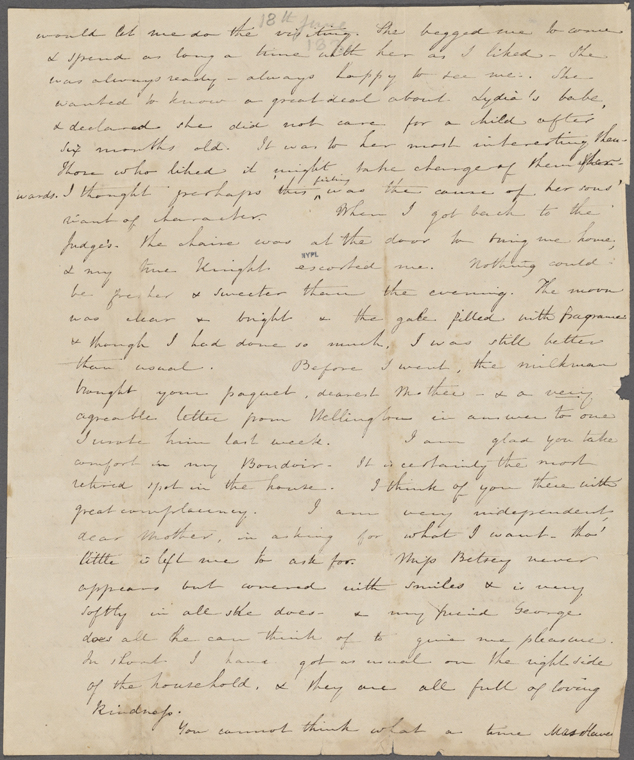 18th June
would let me do the visiting. She begged me to come
& spend as long a time with her as I liked - She
was always ready - always happy to see me. She
wanted to know a great deal about Lydia's babe,
& declared she did not care for a child after
six months old. It was to her most interesting then.
Those who liked it might take charge of them after-
wards. I thought perhaps this was the cause of her sons'
want of character. When I got back to the
Judge's. the chaise was at the door to bring me home,
& my true Knight escorted me. Nothing could
NYPL
be fresher & sweeter than the evening. The moon
was clear & bright & the gale filled with fragrance
& though I had done so much, I was still better
than usual. Before I went, the milkman
brought your paquet, dearest Mother - & a very
agreable letter from Wellington in answer to one
I wrote him last week. I am glad you take
comfort in my Boudoir. It is certainly the most
retired spot in the house. I think of you there with
great complacency. I am very independent,
dear Mother, in asking for what I want - tho'
little is left me to ask for. Miss Betsey never
appears but covered with smiles & is very
softly in all she does - & my friend George
does all he can think of to give me pleasure.
In short I have got as usual on the right side
of the household, & they are all full of loving
kindness.
You cannot think what a time Mrs